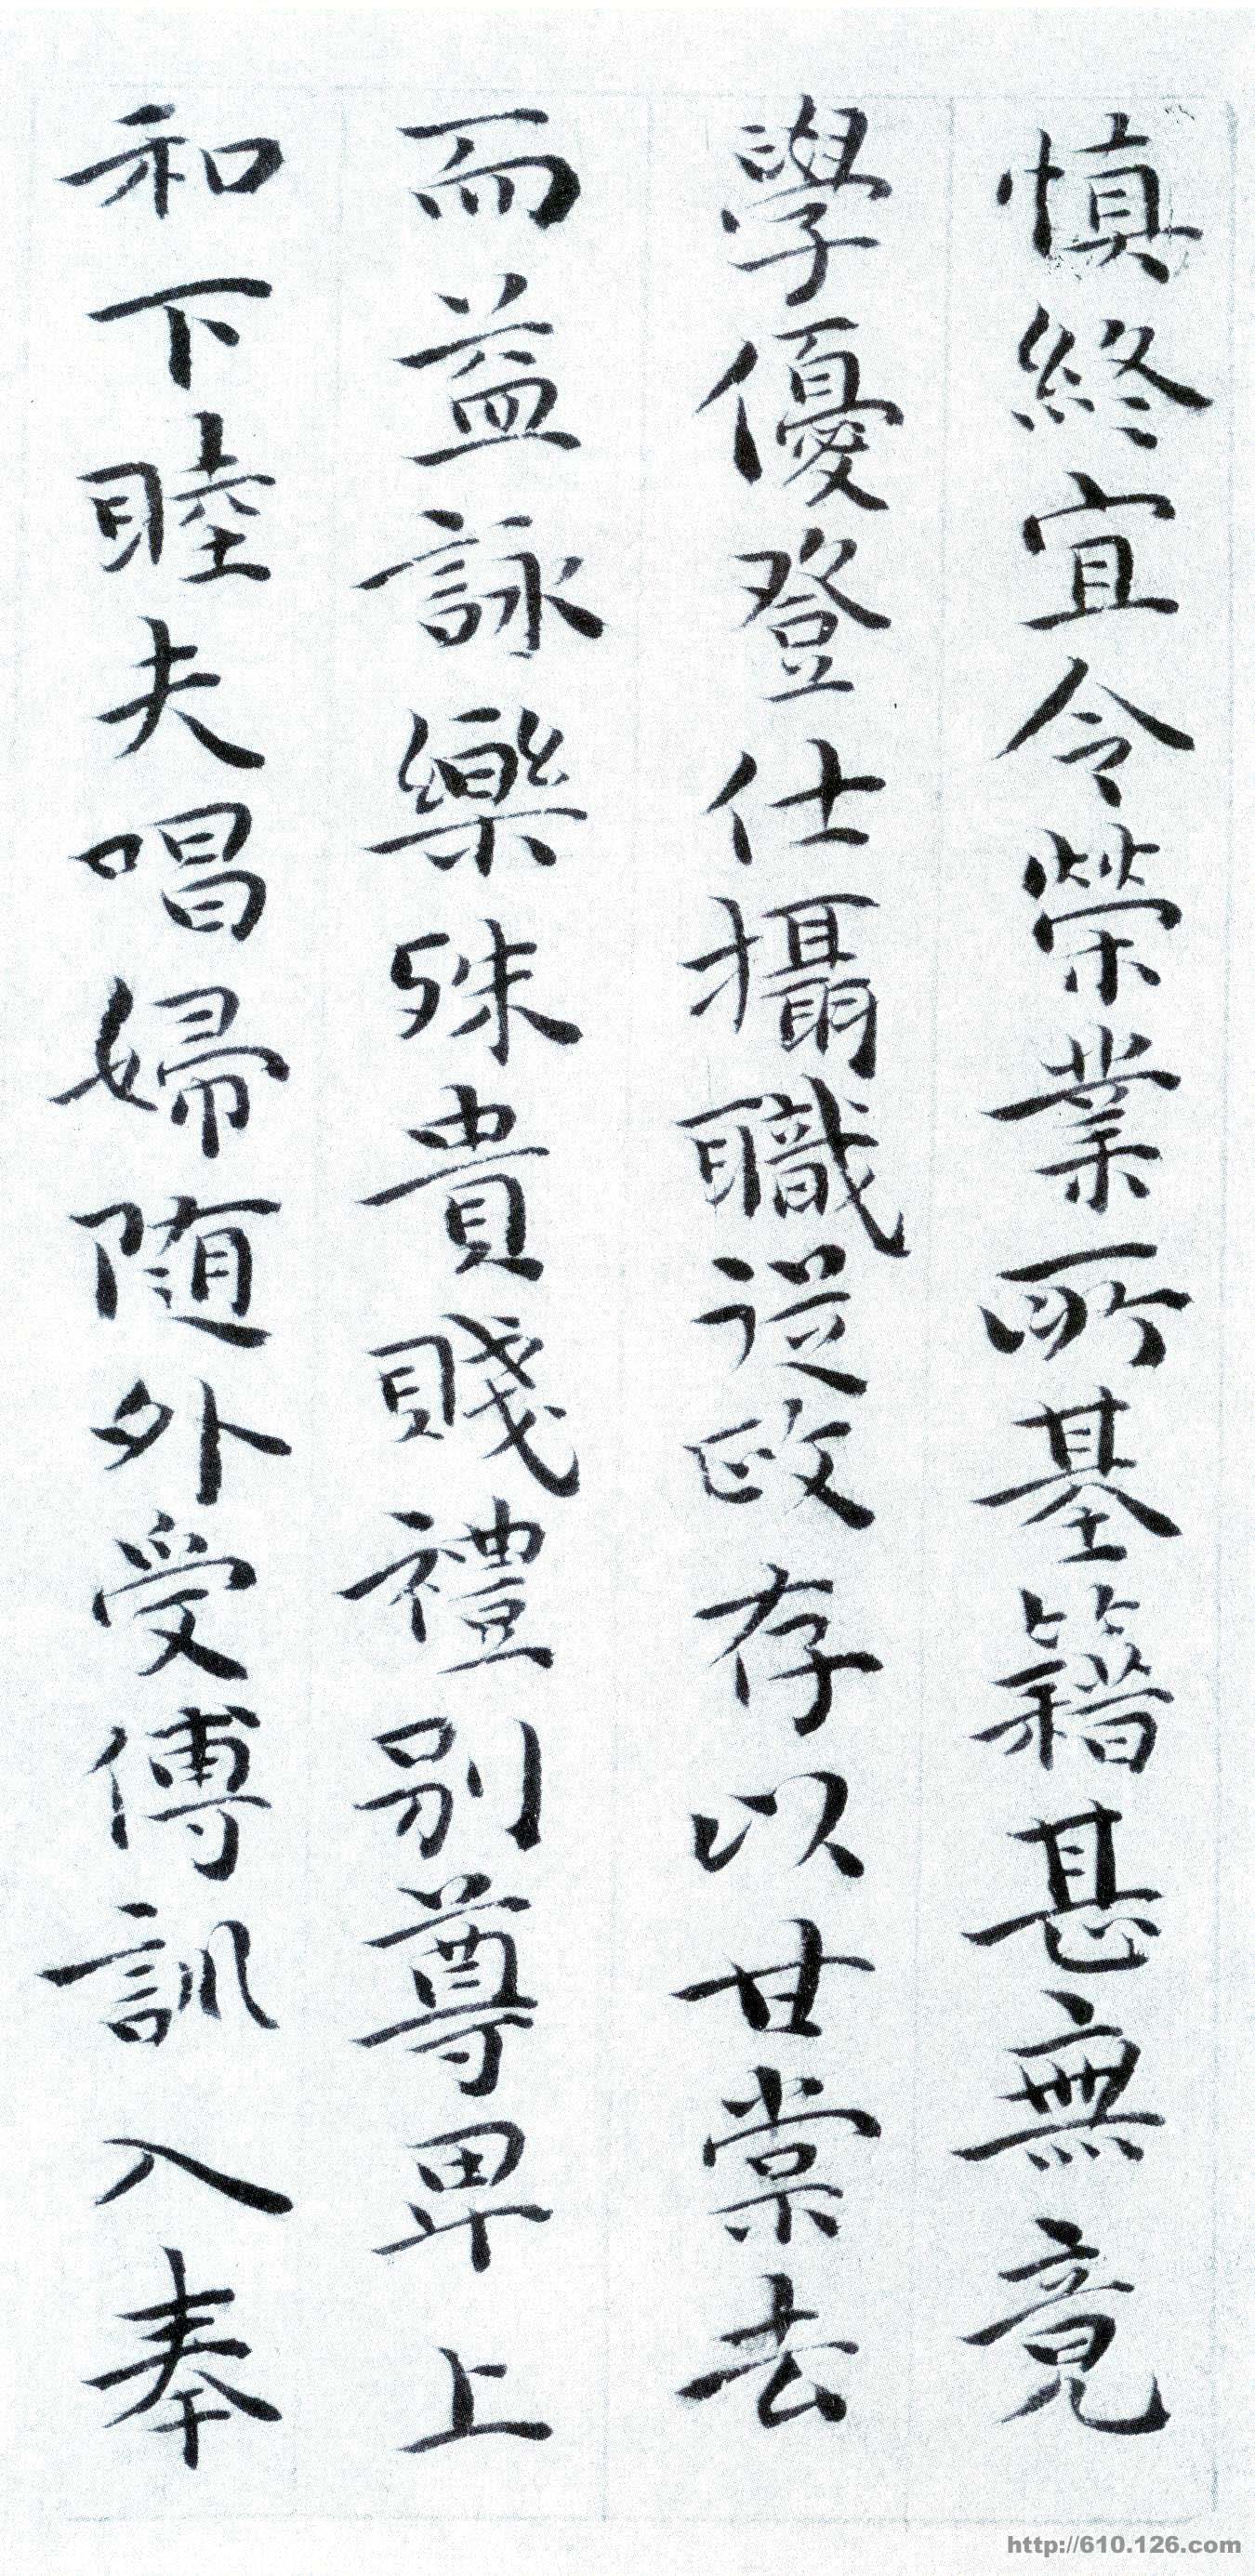 慎終宜令榮業所基籍甚無竟
學優登仕攝職從政存以甘棠去
而益詠樂殊貴賤禮別尊卑上
和下睦夫唱婦随外受傅訓入奉
http://610.126.com